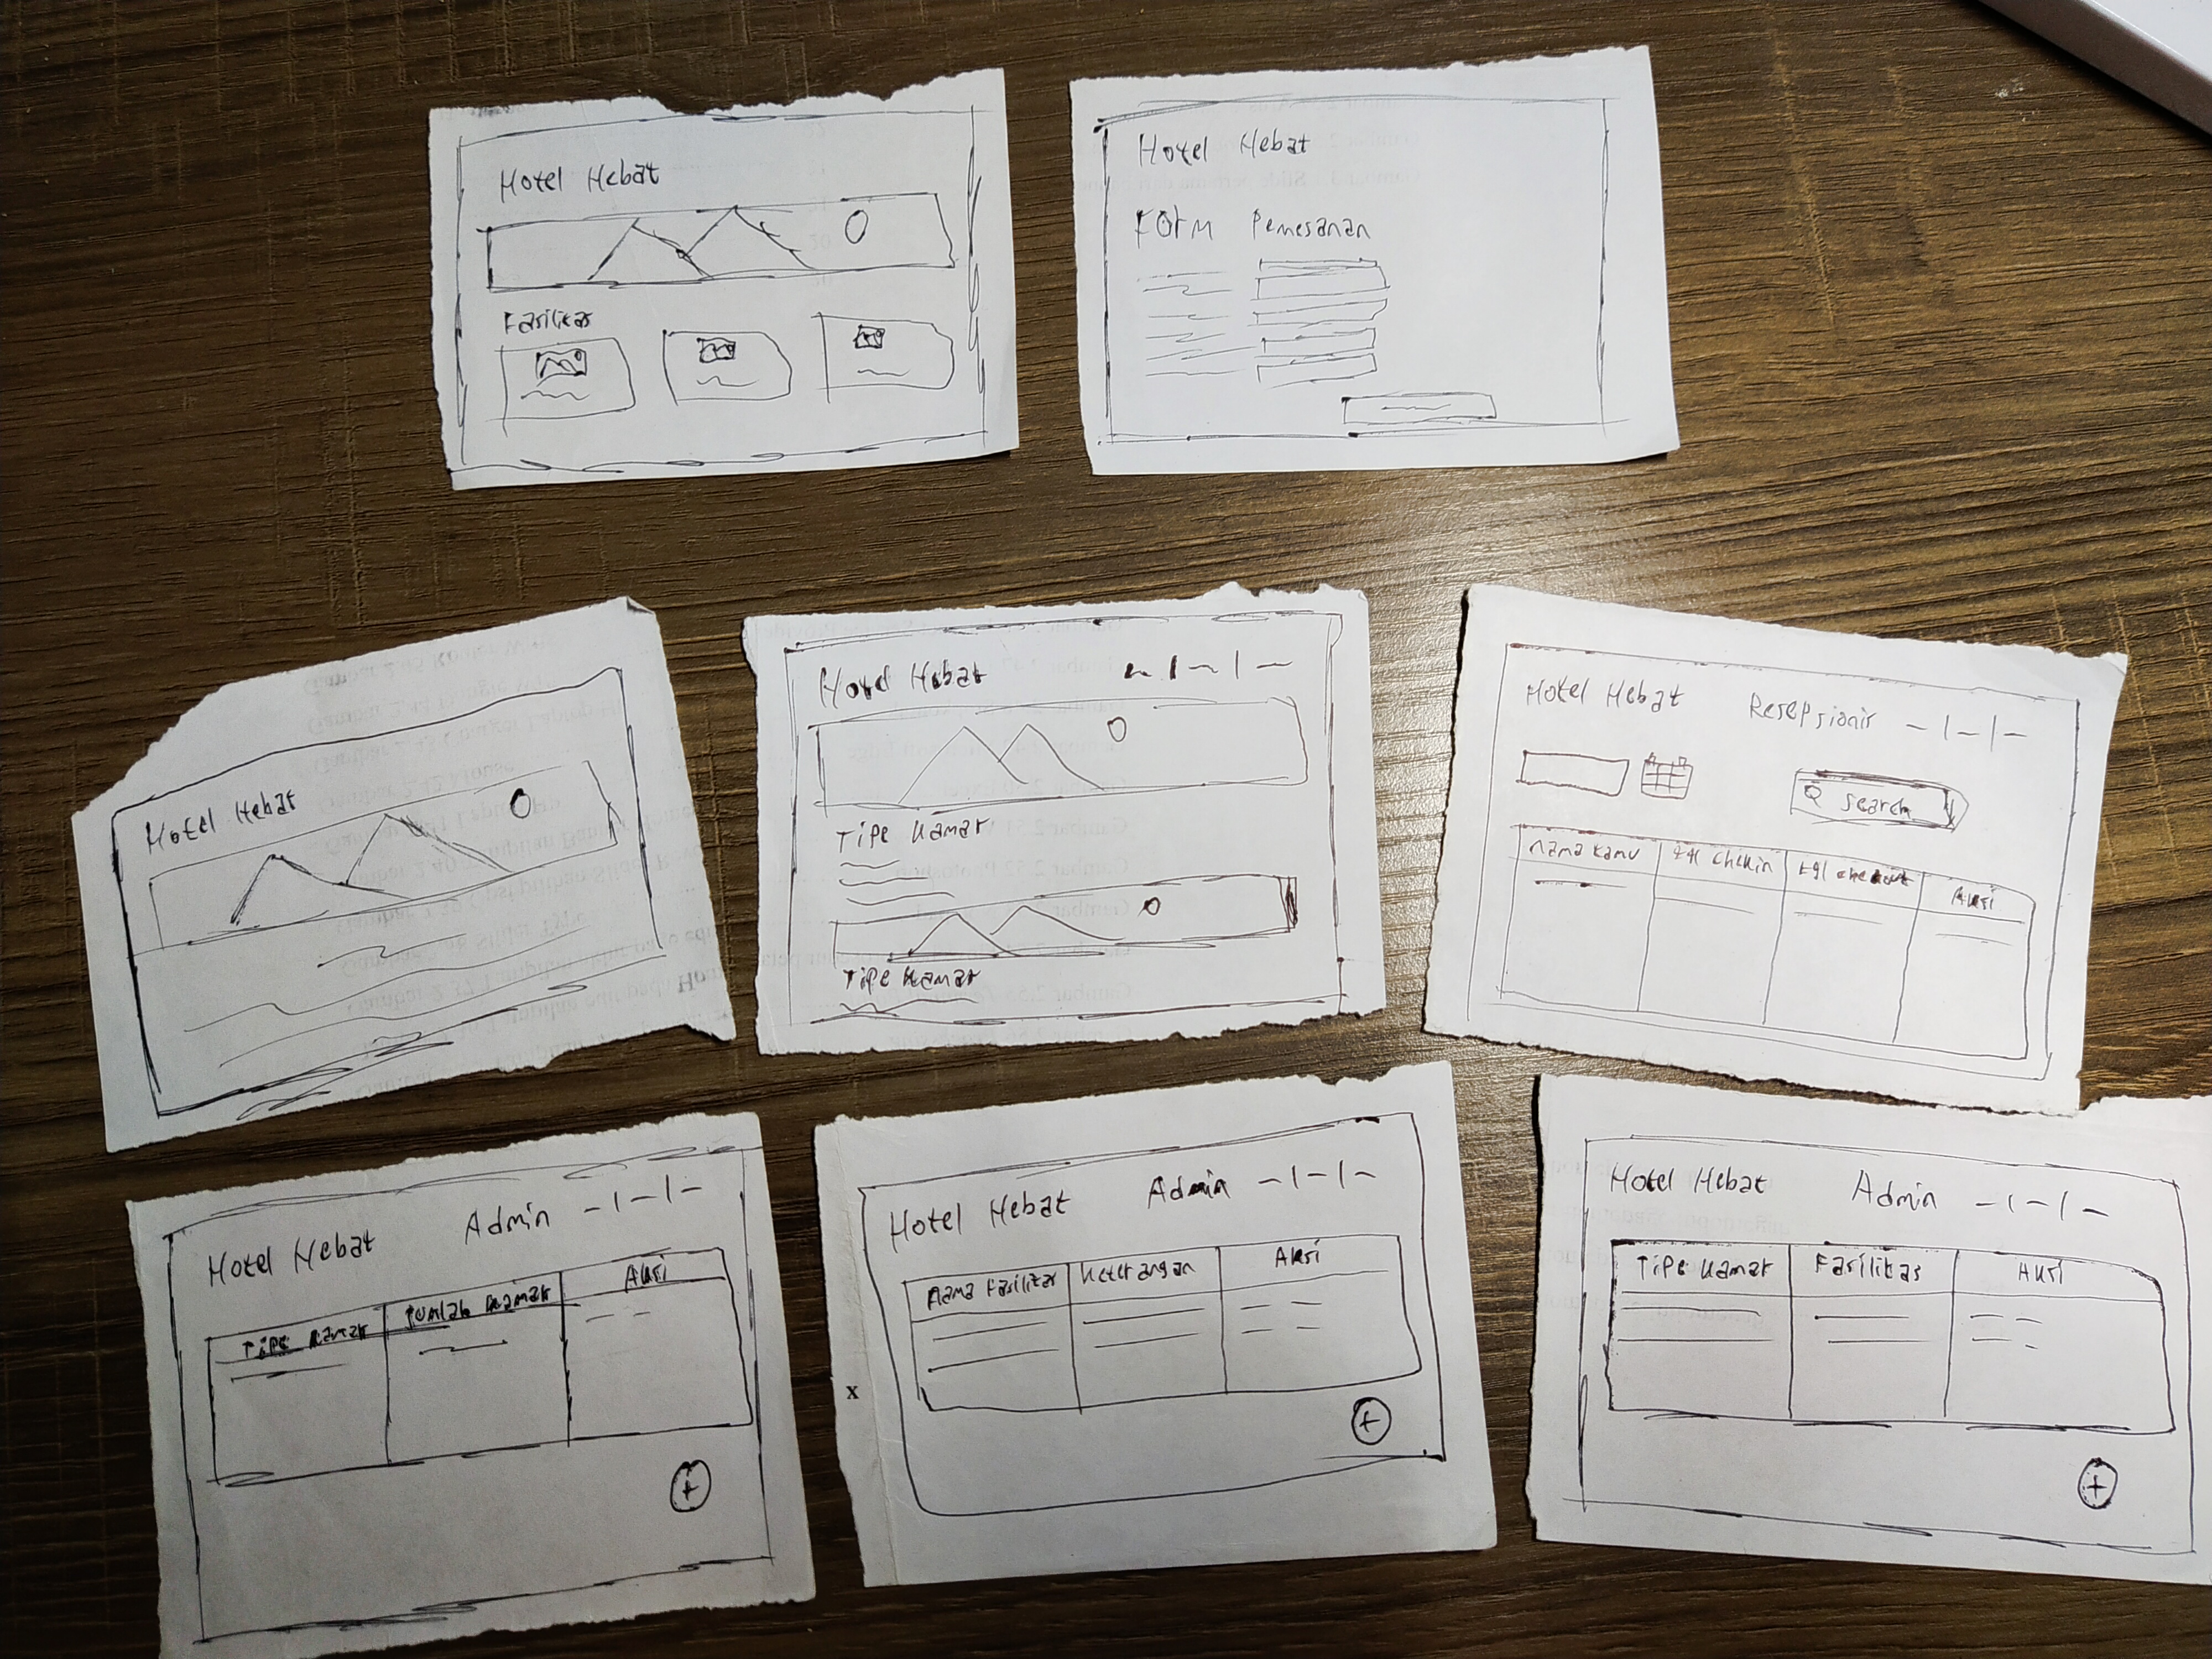 Hotel Hebat
Fasilitas
Hotel Hebat
Form Pemesanan
Hotel Hebat
Hotel Hebat
Tipe Kamar
Tipe Kamar
Hotel Hebat Resepsionis
Search
nama tamu tgl chekin tgl checkout Aksi
Hotel Hebat Admin
Tipe Kamar Jumlah Kamar Aksi
+
x
Hotel Hebat Admin
Nama Fasilitas Keterangan Aksi
+
Hotel Hebat Admin
Tipe Kamar Fasilitas Aksi
+